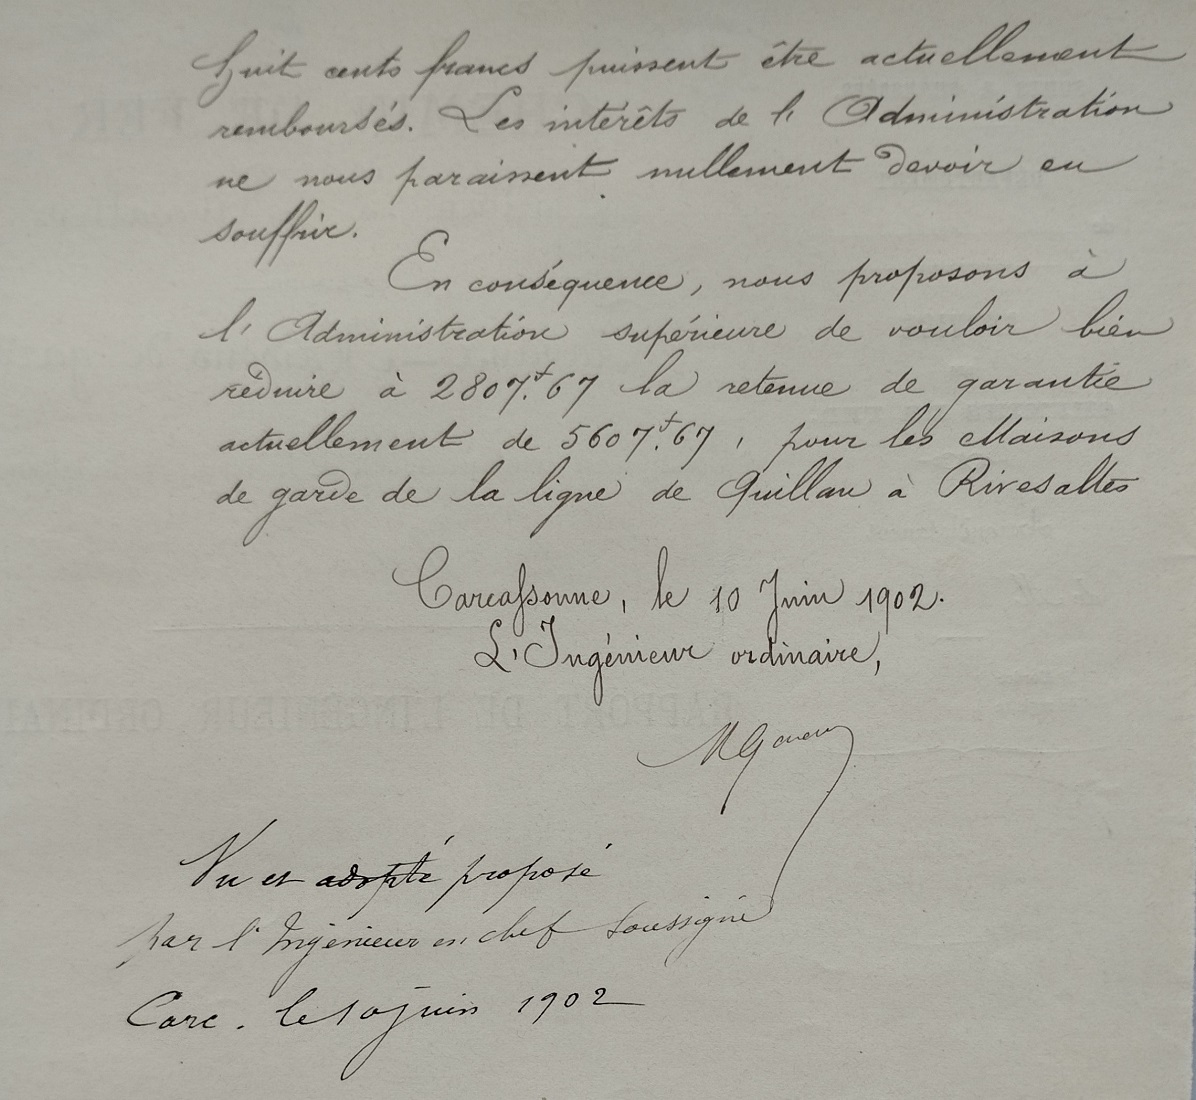 huit cents francs puissent être actuellement
remboursés. Les intérêts de l'Administration
ne nous paraissent nullement devoir en
souffrir.
En conséquence, nous proposons à
l'Administration supérieure de vouloir bien
réduire à 2807.f67 la retenue de garantie
actuellement de 5607.f67, pour les Maisons
de garde de la ligne de Quillan à Rivesaltes
Carcassonne, le 10 Juin 1902.
L'Ingénieur ordinaire,
Vu et adopté proposé
par l'Ingénieur en chef soussigné
Carc. le 10 juin 1902
RAPPORT DE L'INGÉNIEUR ORDINAI